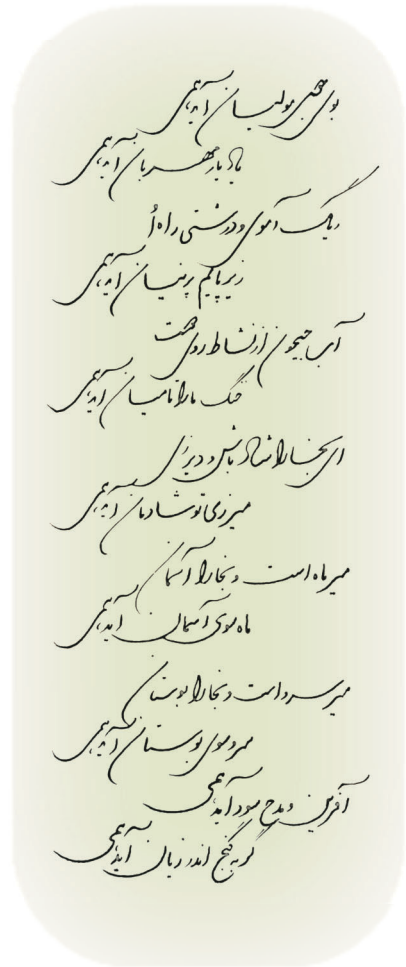 بوی جوی مولیان آید همی
یاد یار مهربان آید همی
ریگ آموی و درشتی راه او
زیر پایم پرنیان آید همی
آب جیحون از نشاط روی دوست
خنگ ما را تا میان آید همی
ای بخارا شاد باش و دیر زی
میر زی تو شادمان آید همی
میر ماه است و بخارا آسمان
ماه سوی آسمان آید همی
میر سرو است و بخارا بوستان
سرو سوی بوستان آید همی
آفرین و مدح سود آید همی
گر به گنج اندر زیان آید همی